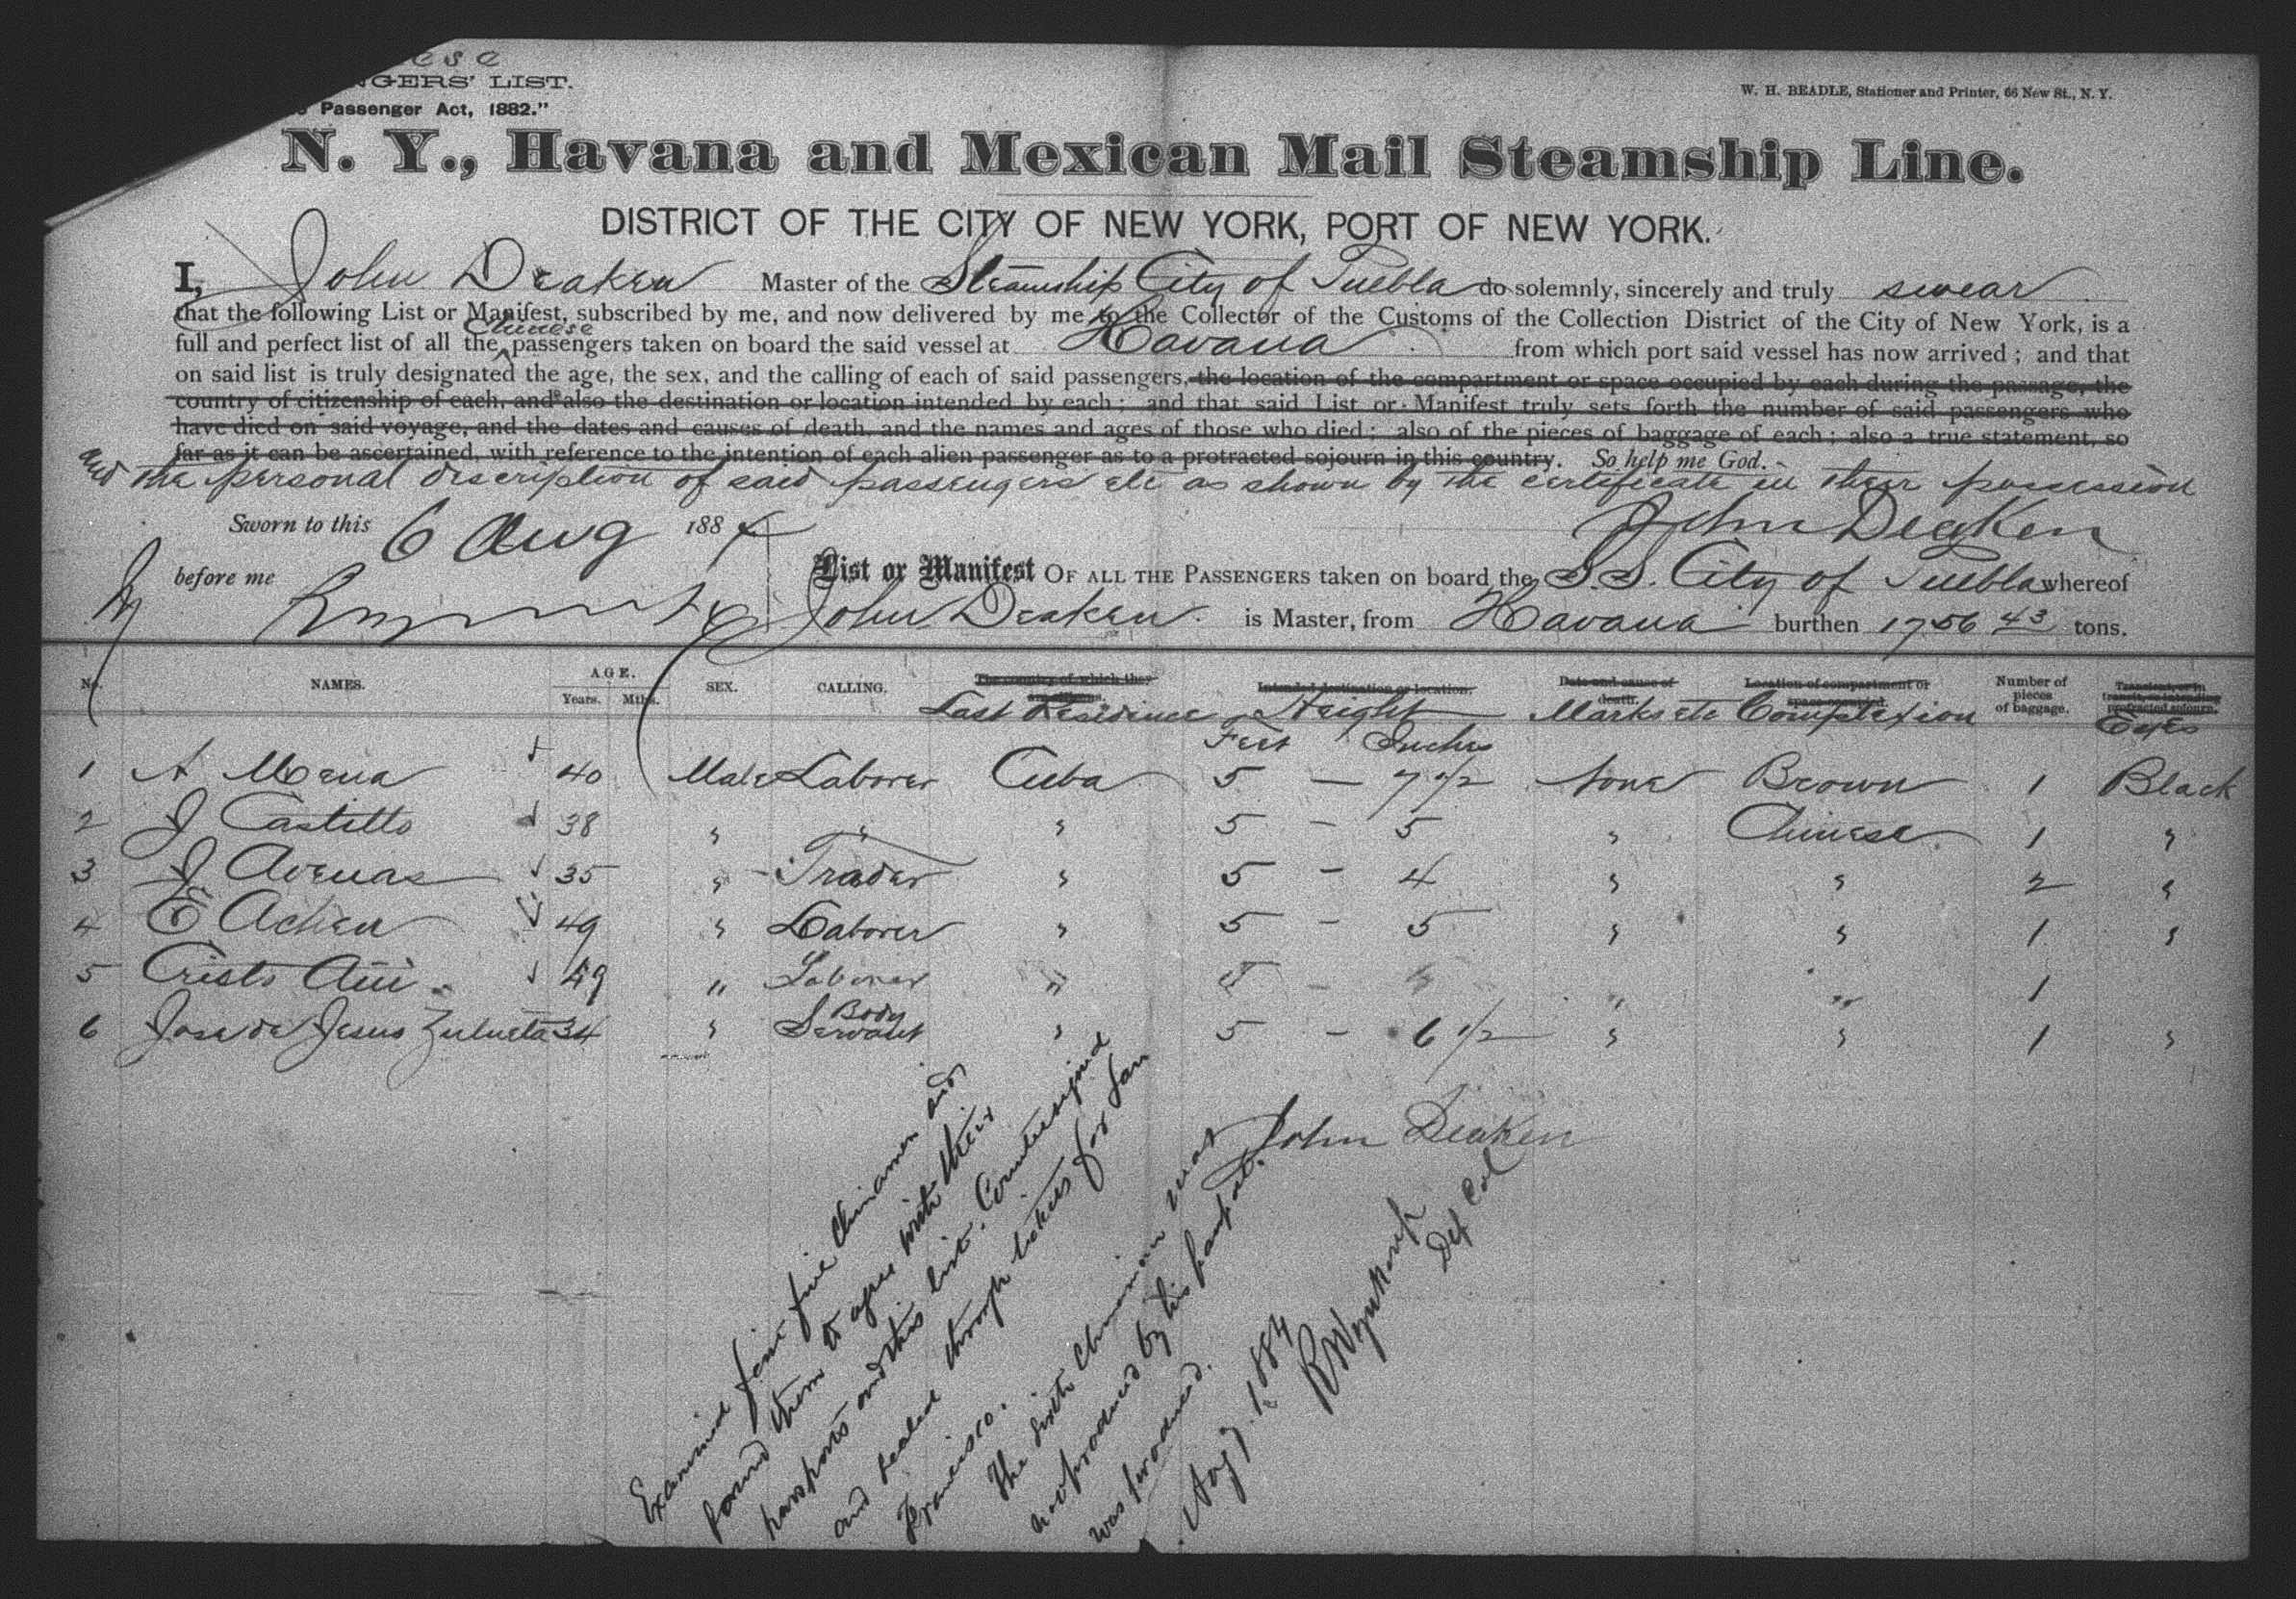 ese
NGERS' LIST.
Passenger Act, 1882."
W. H. BEADLE, Stationer and Printer, 66 New St., N. Y.
N. Y., Havana and Mexican Mail Steamship Line.
DISTRICT OF THE CITY OF NEW YORK, PORT OF NEW YORK.
I, John Deaken Master of the Steamship City of Puebla do solemnly, sincerely and truly swear
that the following List or Manifest, subscribed by me, and now delivered by me to the Collector of the Customs of the Collection District of the City of New York, is a
full and perfect list of all the Chinese passengers taken on board the said vessel at Havana from which port said vessel has now arrived; and that
on said list is truly designated the age, the sex, and the calling of each of said passengers, the location of the compartment or space occupied by each during the passage, the
country of citizenship of each, and also the destination or location intended by each; and that said List or Manifest truly sets forth the number of said passengers who
have died on said voyage, and the dates and causes of death, and the names and ages of those who died; also of the pieces of baggage of each; also a true statement, so
far as it can be ascertained, with reference to the intention of each alien passenger as to a protracted sojourn in this country. So help me God.
and the personal description of said passengers etc as shown by the certificate in their possession
Sworn to this 6 Aug 1884 John Deaken
before me
List or Manifest OF ALL THE PASSENGERS taken on board the S.S. City of Puebla whereof
John Deaken is Master, from Havana burthen 1756 43 tons.
No. NAMES. AGE. Years. Mths. SEX. CALLING. The country of which they are citizens. Intended destination or location. Date and cause of death. Location of compartment or space occupied. Number of pieces of baggage. Transient, or in transit, or intending protracted sojourn.
Last Residence Height Marks etc Complexion Eyes
Feet Inches
1 A Mena 40 Male Laborer Cuba 5 — 7 1/2 None Brown 1 Black
2 J Castillo 38 " " " 5 — 5 " Chinese 1 "
3 J Avenas 35 " Trader " 5 — 4 " " 2 "
4 E Achen 49 " Laborer " 5 — 5 " " 1 "
5 Cristo 49 " Laborer " 5 - " " 1
6 Jose de Jesus Zulueta 34 " Body Servant " 5 — 6 1/2 " " 1 "
John Deaken
Examined five Chinamen and
found them to agree with their
passports and this list. Countersigned
and sealed through tickets for San
Francisco.
The sixth Chinaman was
not produced by his passpt.
was produced.
Aug 7. 1884
Dep Col